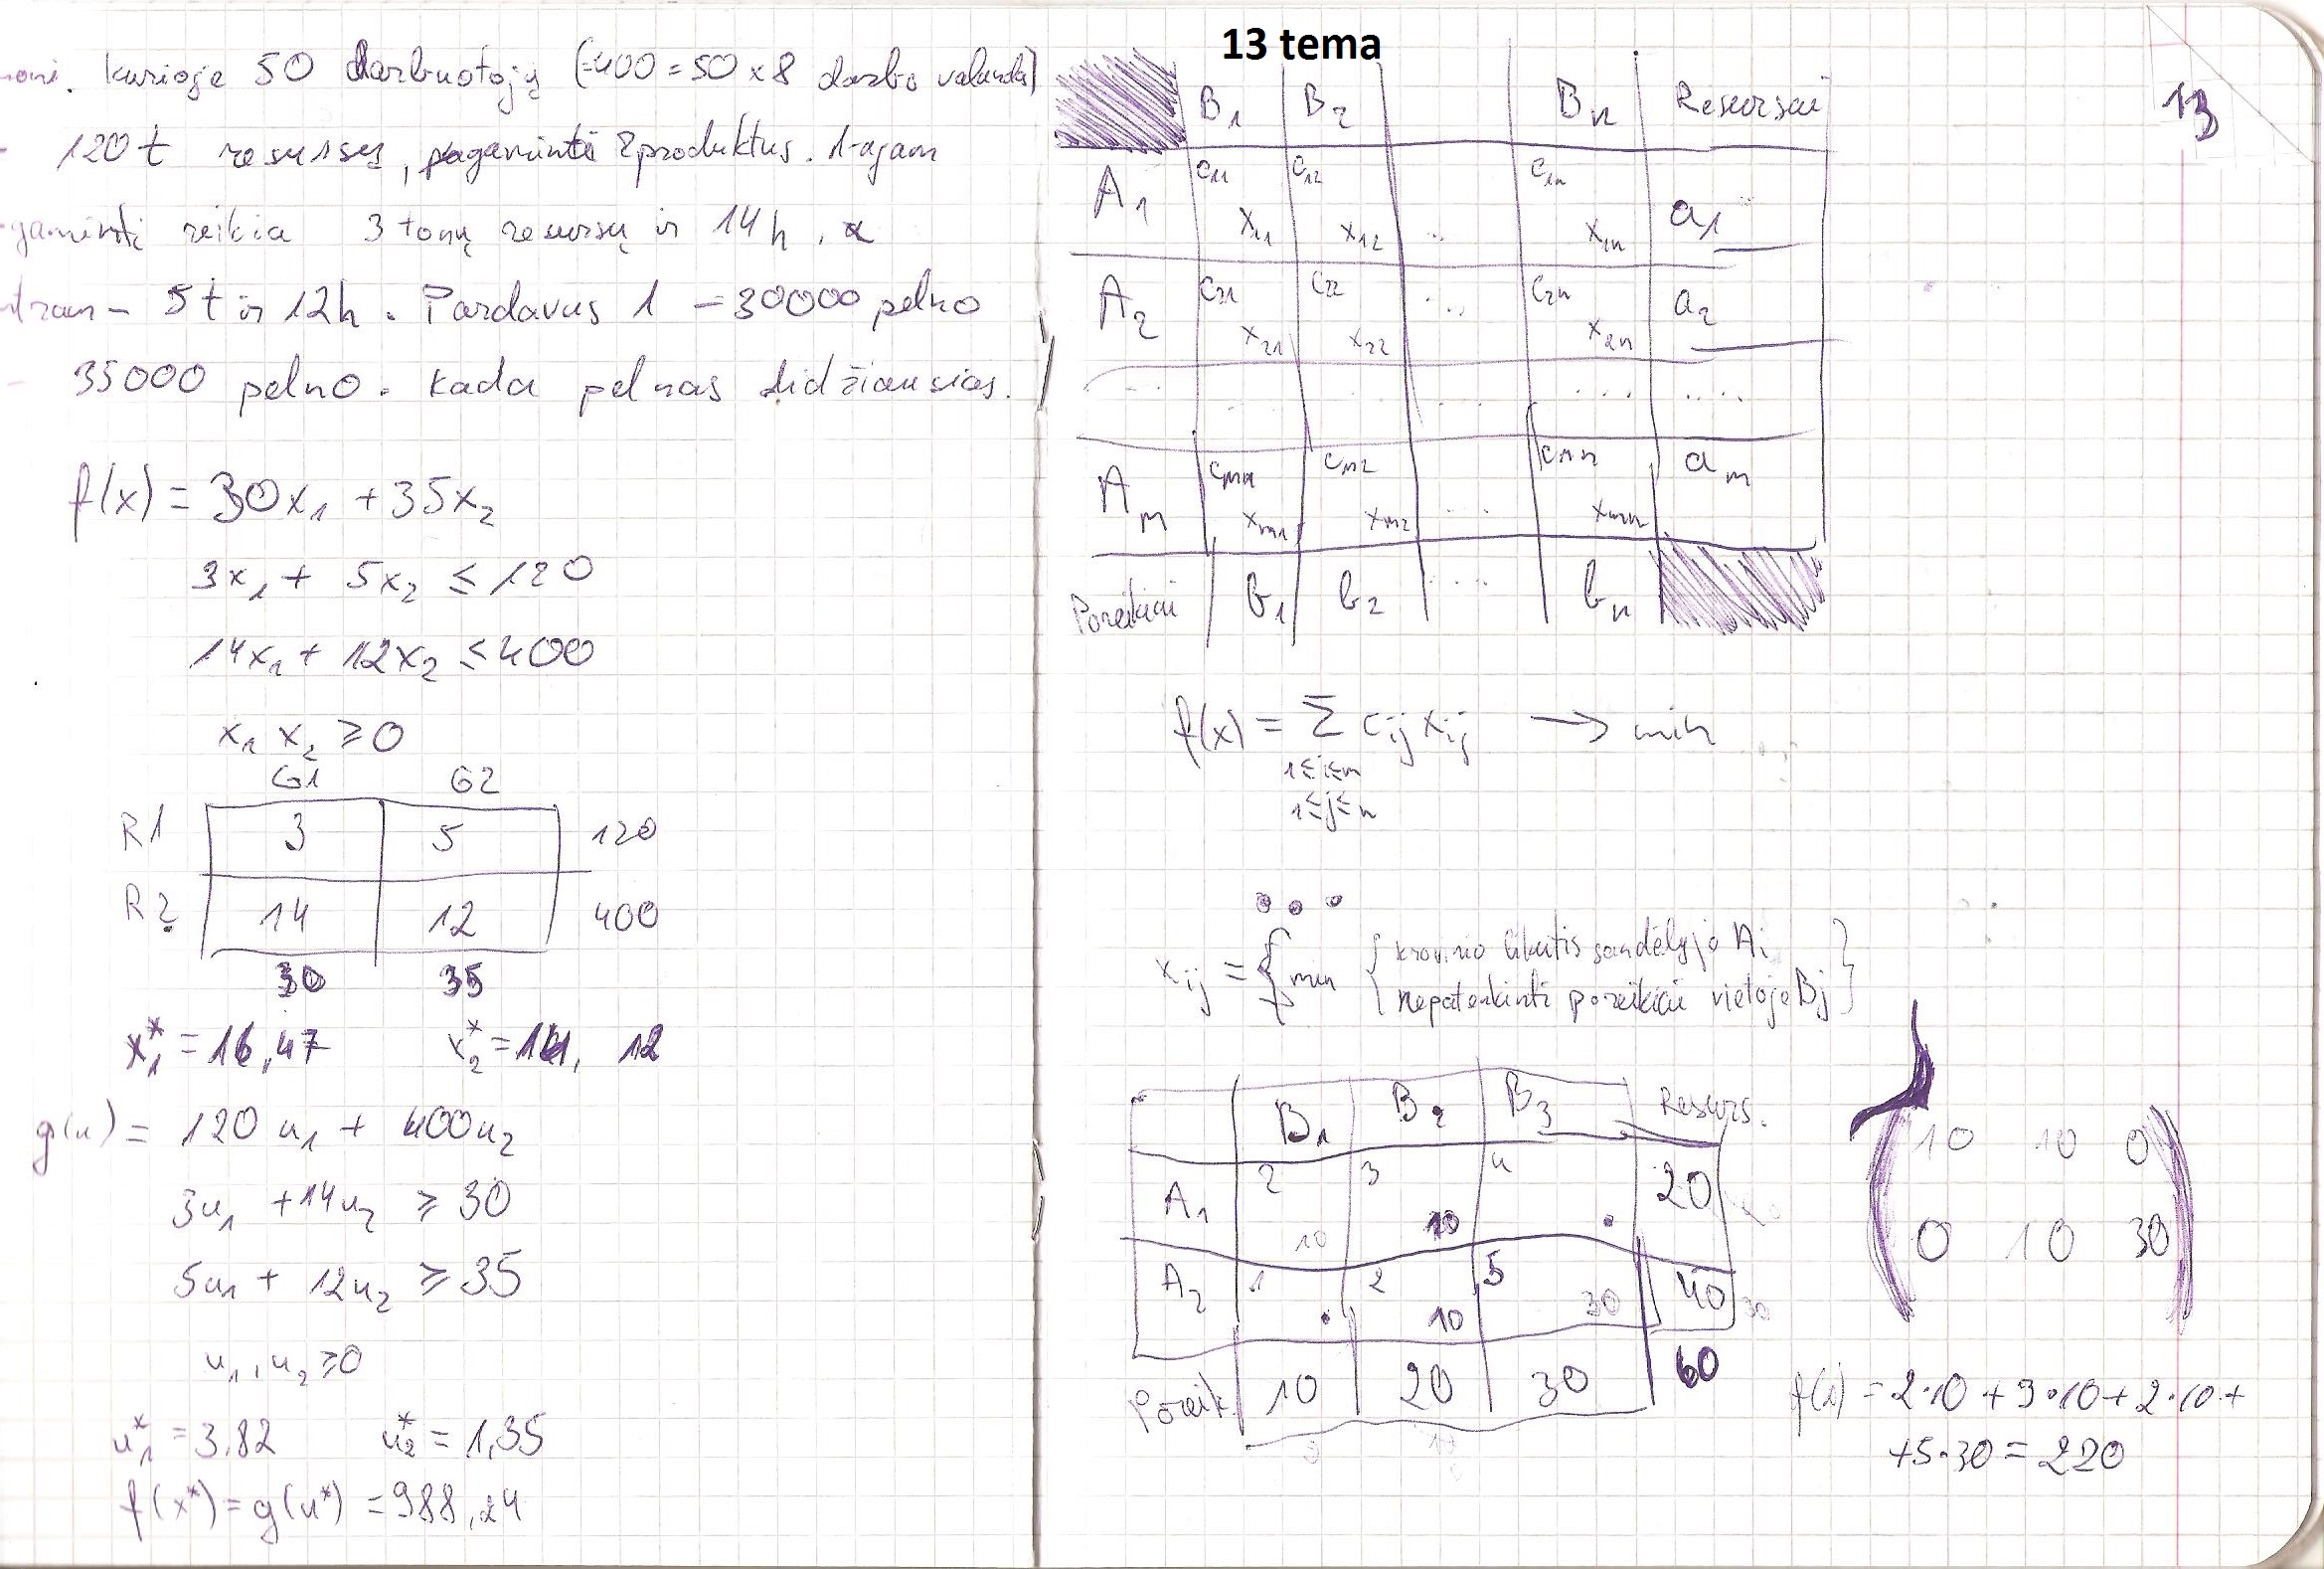 kurioje 50 darbuotojų (=400=50×8 darbo valandų)
120t resursų, pagaminti 2 produktus. 1-ajam
gaminti reikia 3 tonų resursų ir 14h, a
antram – 5t ir 12h. Pardavus 1 – 30000 pelno
– 35000 pelno. Kada pelnas didžiausias.
f(x) = 30x₁ + 35x₂
3x₁ + 5x₂ ≤ 120
14x₁ + 12x₂ ≤ 400
x₁ x₂ ≥ 0
G1 G2
R1 3 5 120
R2 14 12 400
30 35
x₁* = 16,47 x₂* = 14, 12
g(u) = 120u₁ + 400u₂
3u₁ + 14u₂ ≥ 30
5u₁ + 12u₂ ≥ 35
u₁, u₂ ≥ 0
u₁* = 3.82 u₂* = 1,35
f(x*) = g(u*) = 988,24
13 tema
13
B₁ B₂ Bₙ Resursai
A₁ c₁₁ c₁₂ c₁ₙ a₁
x₁₁ x₁₂ .. x₁ₙ
A₂ c₂₁ c₂₂ ... c₂ₙ a₂
x₂₁ x₂₂ x₂ₙ
... . ... ... ....
Aₘ cₘ₁ cₘ₂ cₘₙ aₘ
xₘ₁ xₘ₂ ... xₘₙ
Poreikiai b₁ b₂ ... bₙ
f(x) = Σ cᵢⱼ xᵢⱼ → min
1≤i≤m
1≤j≤n
xᵢⱼ = { min { krovinio likutis sandėlyje Aᵢ
nepatenkinti poreikiai vietoje Bⱼ }
B₁ B₂ B₃ Resurs.
A₁ 2 3 4 20
10 10 •
A₂ 1 2 5 40 30
• 10 30
60
Poreik. 10 20 30
10 10 0
0 10 30
f(x) = 2·10 + 3·10 + 2·10 +
+5·30 = 220